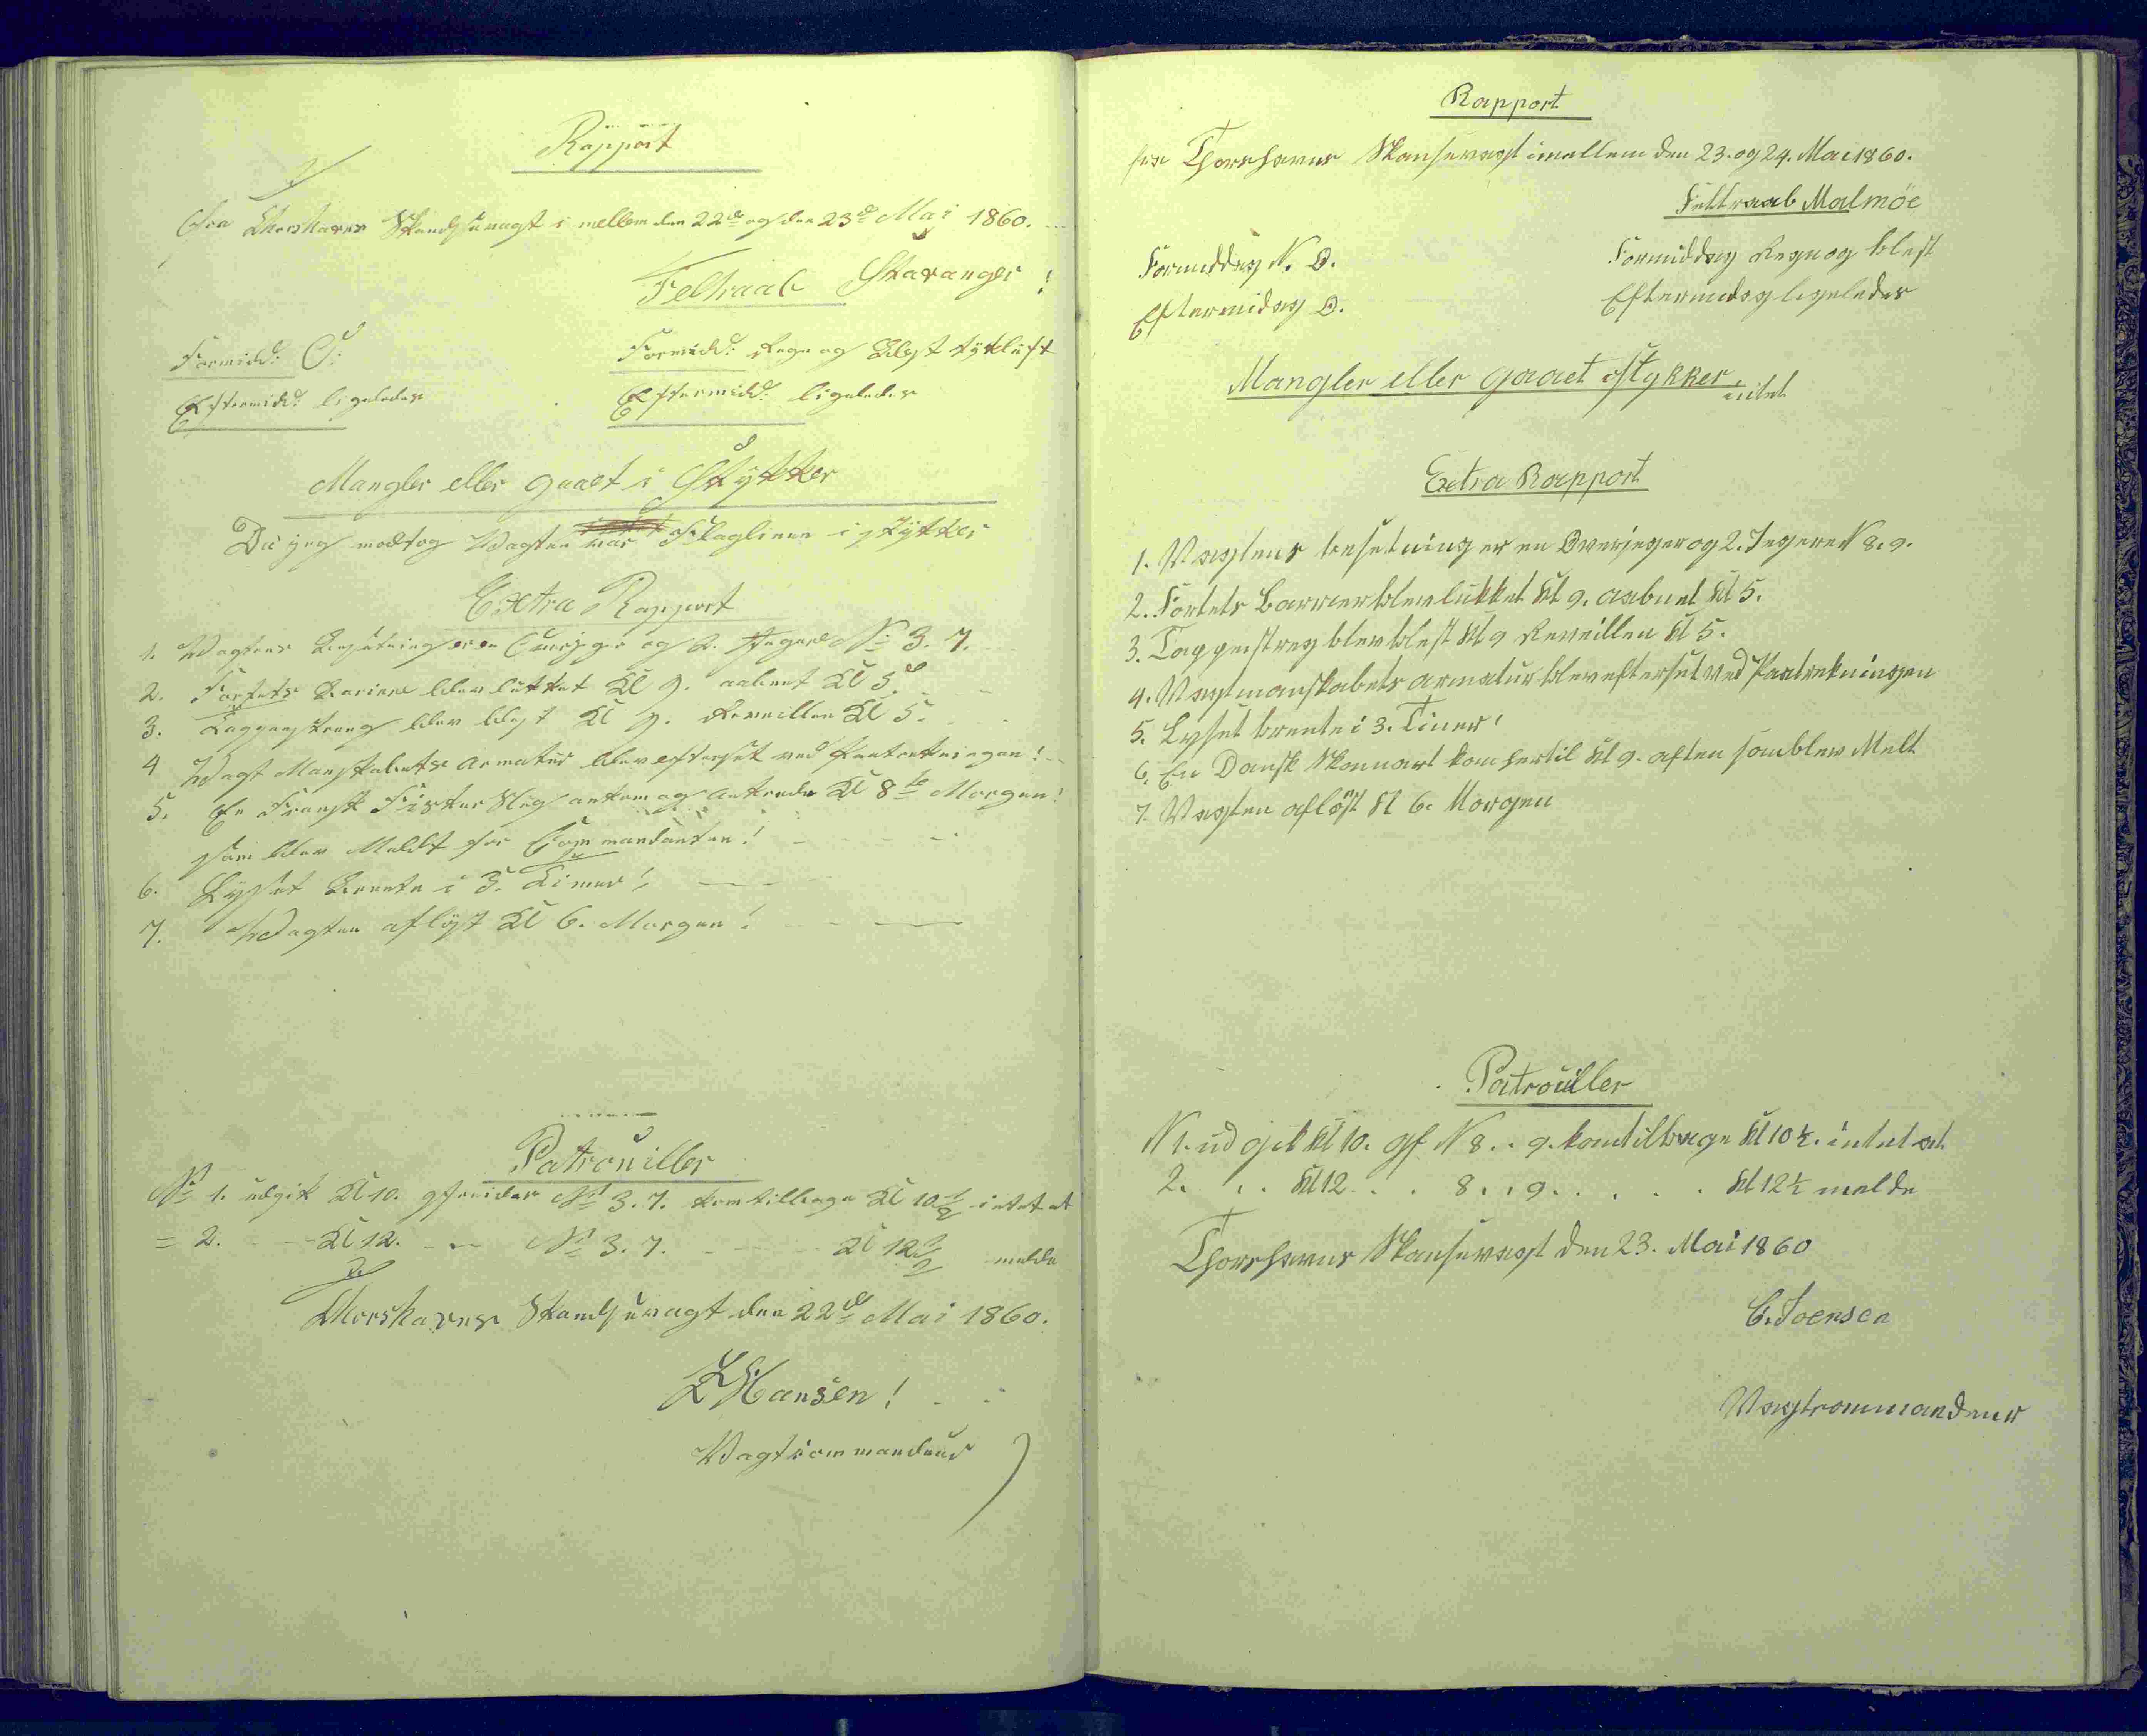 Rapport
fra Thorshavns Skandsevagt i mellem den 22de og den 23de Mai 1860.
Feltraab Stavanger!
Formidd: O:
Formidd: Regn og Blest tykluft
Eftermidd: ligeledes
Eftermidd: ligeledes
Mangler eller gaaet i Stykker
Da jeg modtog Vagten var Flaglinen i stykker
Extra Rapport
1. Vagtens Besetning er en Overjeger og 2. Jegere No 3. 7.
2. Fortets Bariere blev lukket Kl 9. aabnet Kl 5.
3. Tappenstreng blev blest Kl 9. Reveillen Kl 5.
4 Vagt Manskabets Armatur blev efterset ved Paatrekningen!
5. En Fransk Fisker Slup ankom og ankrede Kl 8te Morgen!
som blev Meldt for Commandanten!
6. Lyset Brente i 3. Timer!
7. Vagten aflöst Kl 6. Morgen!
Patrouiller
No 1. udgik Kl 10. gefreider No 3. 7. kom tilbage Kl 10½ intet at
= 2. Kl 12. No 3. 7. Kl 12½ melde
Thorshavns Skandsevagt den 22de Mai 1860.
Hansen!
Vagtcommandeur
Rapport
fra Thorshavns Skansevagt imellem den 23. og 24. Mai 1860.
Feltraab Malmöe
Formiddag N. O.
Formiddag Regn og blest
Eftermidag O.
Eftermidag ligeledes
Mangler eller gaaet istykker, intet
Extra Rapport
1. Vagtens besetning er en Overjeger og 2. Jegere N 8. 9.
2. Fortets Barrier blev lukket Kl 9. aabnet Kl 5.
3. Tappenstreg blev blest Kl 9 Reveillen Kl 5.
4. Vagtmanskabets armatur blev efterset ved Paatrekningen
5. Lyset brente i 3. Timer!
6. En Dansk Skonnart kom hertil Kl 9. aften som blev Melt
7. Vagten aflöst Kl 6. Morgen
Patrouiller
N 1. ud gik Kl 10. gf N 8. . 9. kom tilbage Kl 10½. intet at
2. . . Kl 12 . . 8. . 9. . . . . Kl 12½ melde
Thorshavns Skansevagt den 23. Mai 1860
C. Joensen
Vagtcommandeur